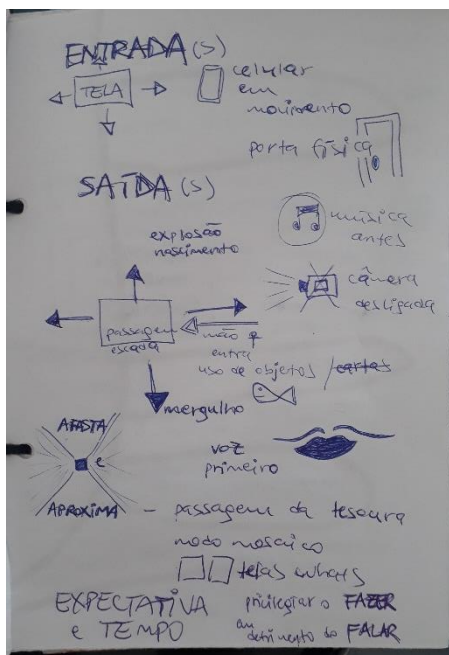 ENTRADA (S)
TELA
celular
em
movimento
porta física
SAÍDA (S)
música
antes
explosão
nascimento
câmera
desligada
passagem
escada
mão q
entra
uso de objetos / cartas
mergulho
AFASTA
e
APROXIMA
voz
primeiro
- passagem da tesoura
modo mosaico
telas
EXPECTATIVA
e TEMPO
privilegiar o FAZER
em detrimento do FALAR